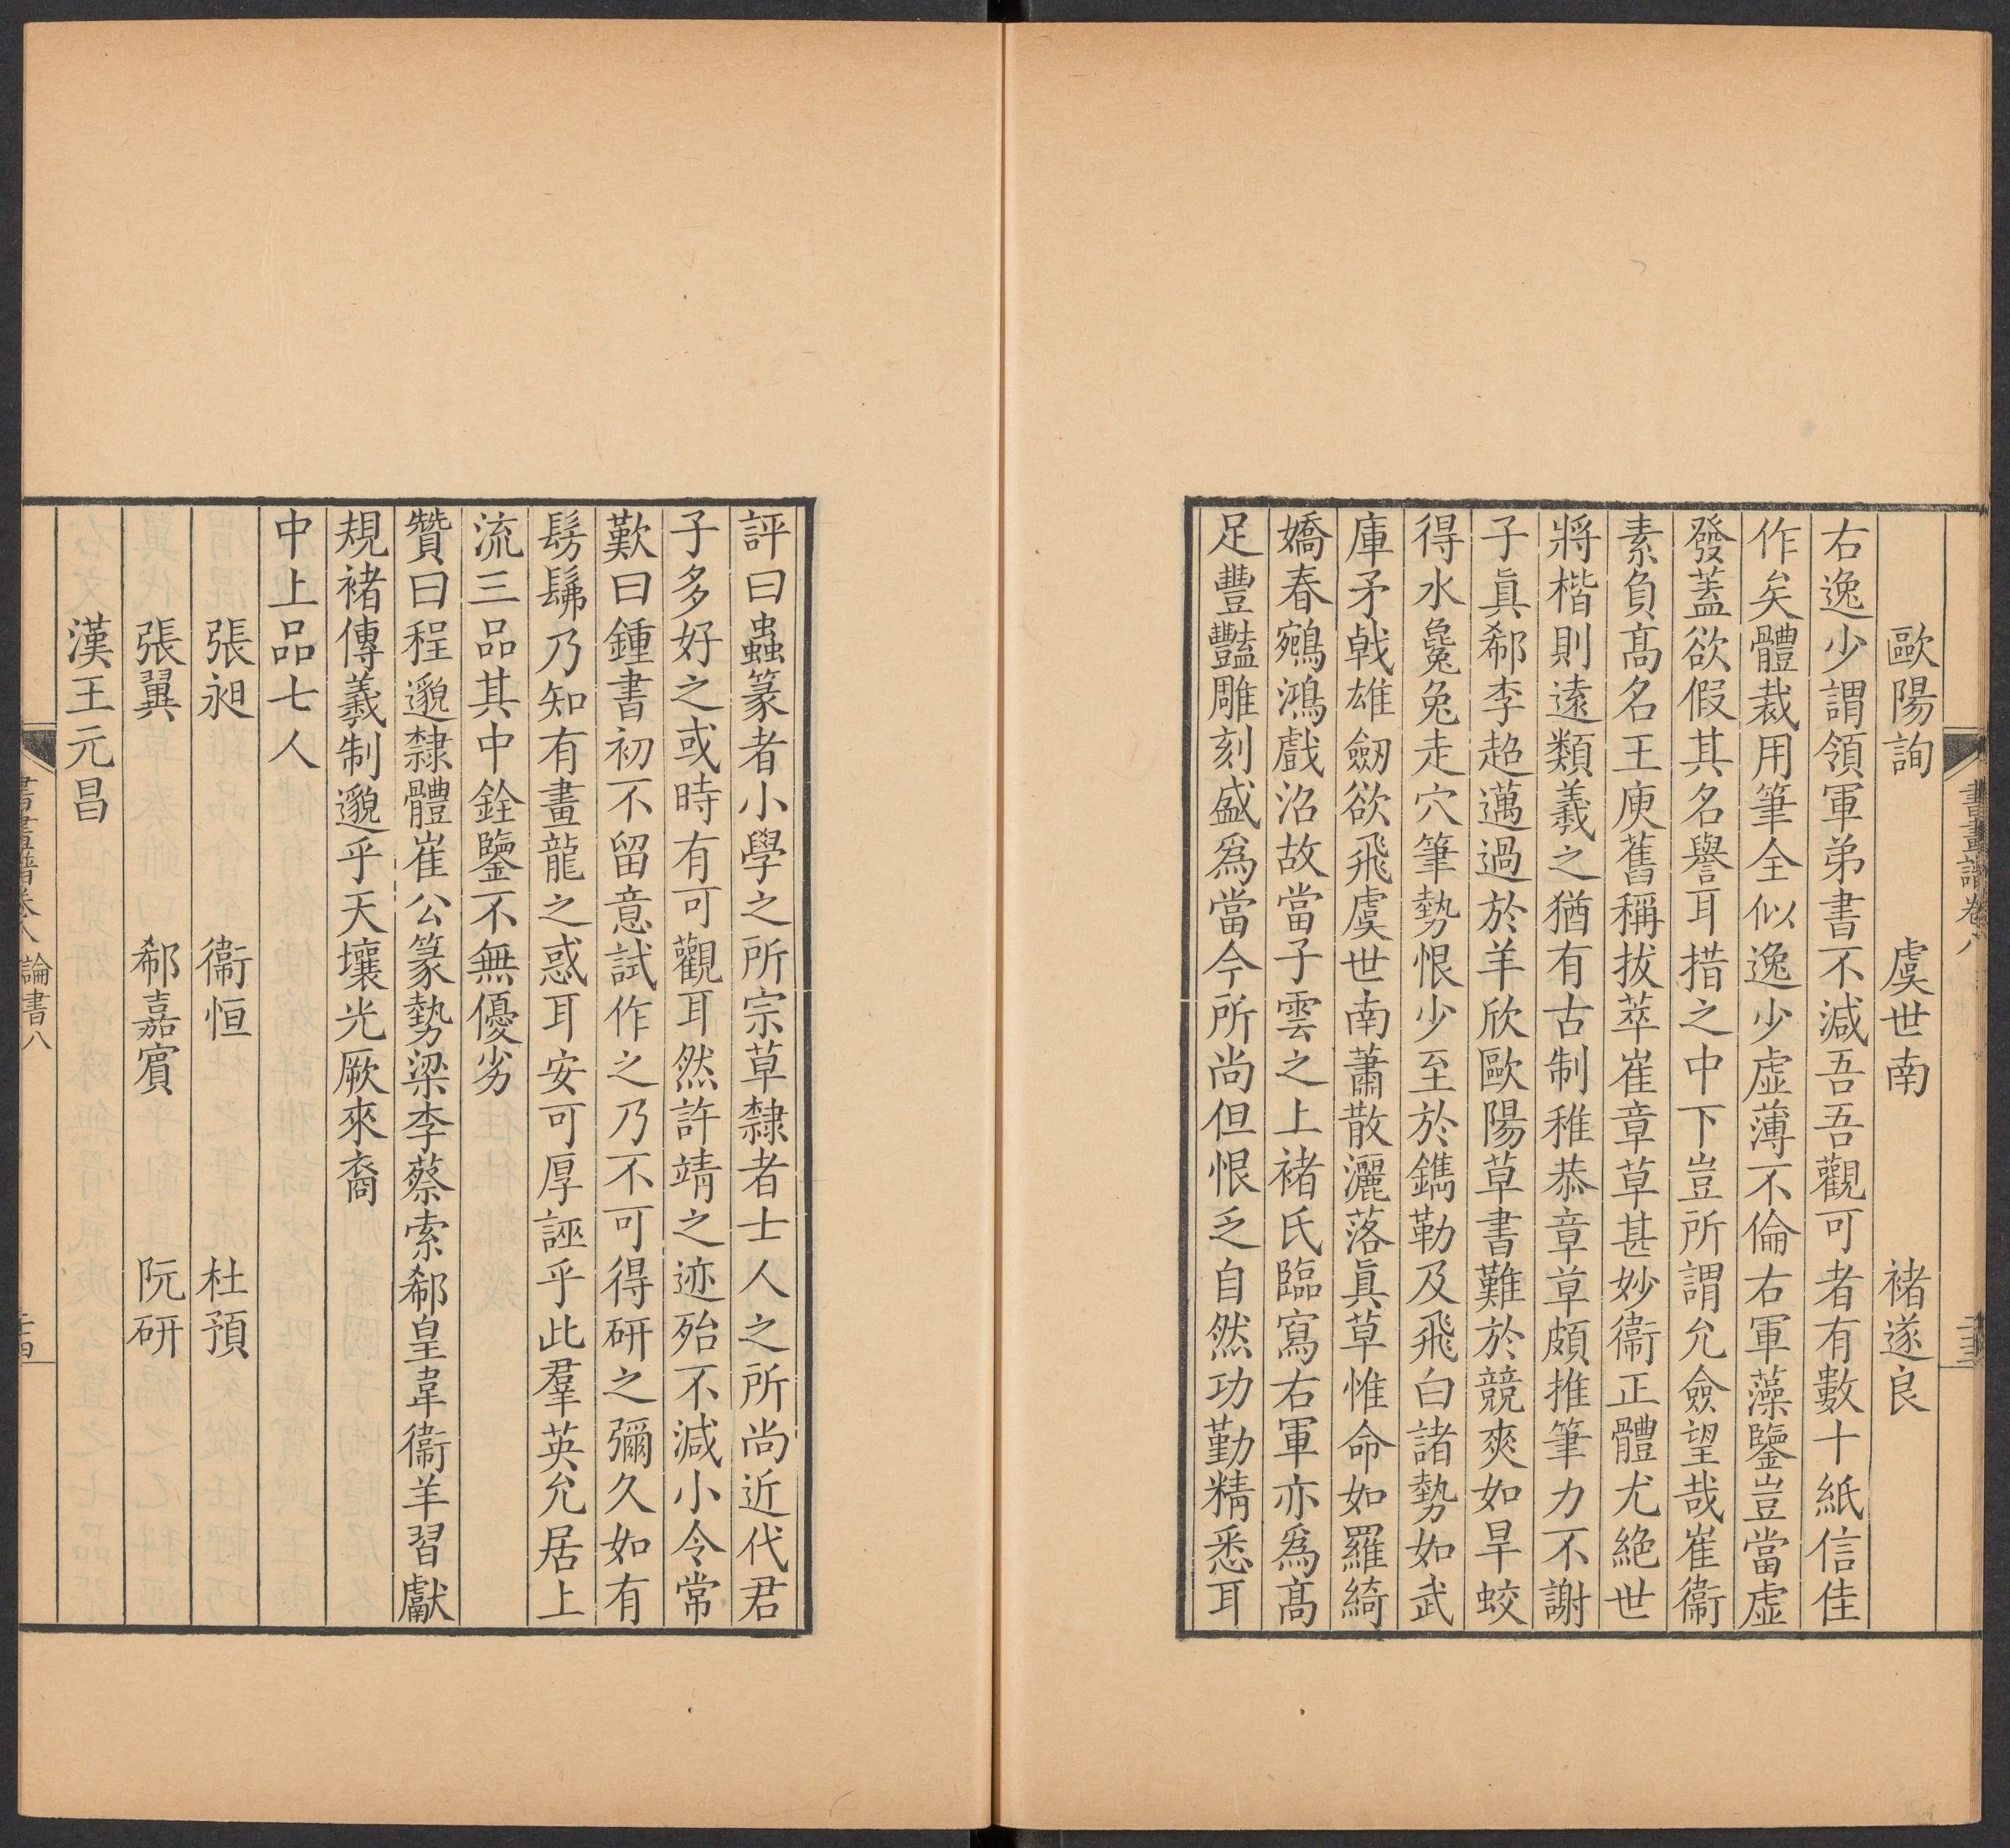 書畫譜卷八
歐陽詢　虞世南　褚遂良
右逸少謂領軍弟書不減吾吾觀可者有數十紙信佳
作矣體裁用筆全似逸少虛薄不倫右軍藻鑒豈當虛
發蓋欲假其名譽耳措之中下豈所謂允僉望哉崔衞
素負髙名王庾舊稱拔萃崔章草甚妙衞正體尤絶世
將楷則遠類羲之猶有古制稚恭章草頗推筆力不謝
子眞郗李超邁過於羊欣歐陽草書難於競爽如旱蛟
得水毚兔走穴筆勢恨少至於鐫勒及飛白諸勢如武
庫矛戟雄劒欲飛虞世南蕭散灑落眞草惟命如羅綺
嬌春鵷鴻戲沼故當子雲之上褚氏臨寫右軍亦爲髙
足豐豔雕刻盛爲當今所尚但恨乏自然功勤精悉耳
評曰蟲篆者小學之所宗草隸者士人之所尚近代君
子多好之或時有可觀耳然許靖之迹殆不減小令常
歎曰鍾書初不留意試作之乃不可得研之彌久如有
髣髴乃知有畫龍之惑耳安可厚誣乎此羣英允居上
流三品其中銓鑒不無優劣
贊曰程邈隸體崔公篆勢梁李蔡索郗皇韋衞羊習獻
規褚傳羲制邈乎天壤光厥來裔
中上品七人
張昶　衞恒　杜預
張翼　郗嘉賓　阮研
漢王元昌
書畫譜卷八　論書八